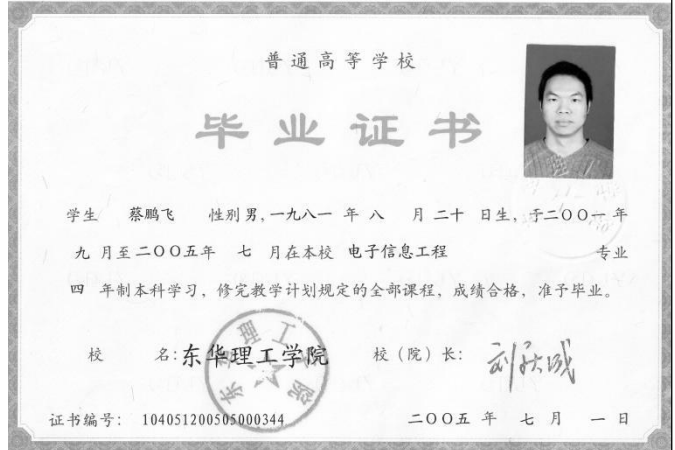 普通高等学校
毕业证书
学生 蔡鹏飞 性别男,一九八一 年 八 月 二十 日生, 于二〇〇一 年
九 月至二〇〇五年 七 月在本校 电子信息工程 专业
四 年制本科学习, 修完教学计划规定的全部课程, 成绩合格, 准予毕业。
校 名: 东华理工学院 校 (院) 长:
东华理工学院
证书编号: 104051200505000344 二〇〇五 年 七 月 一 日